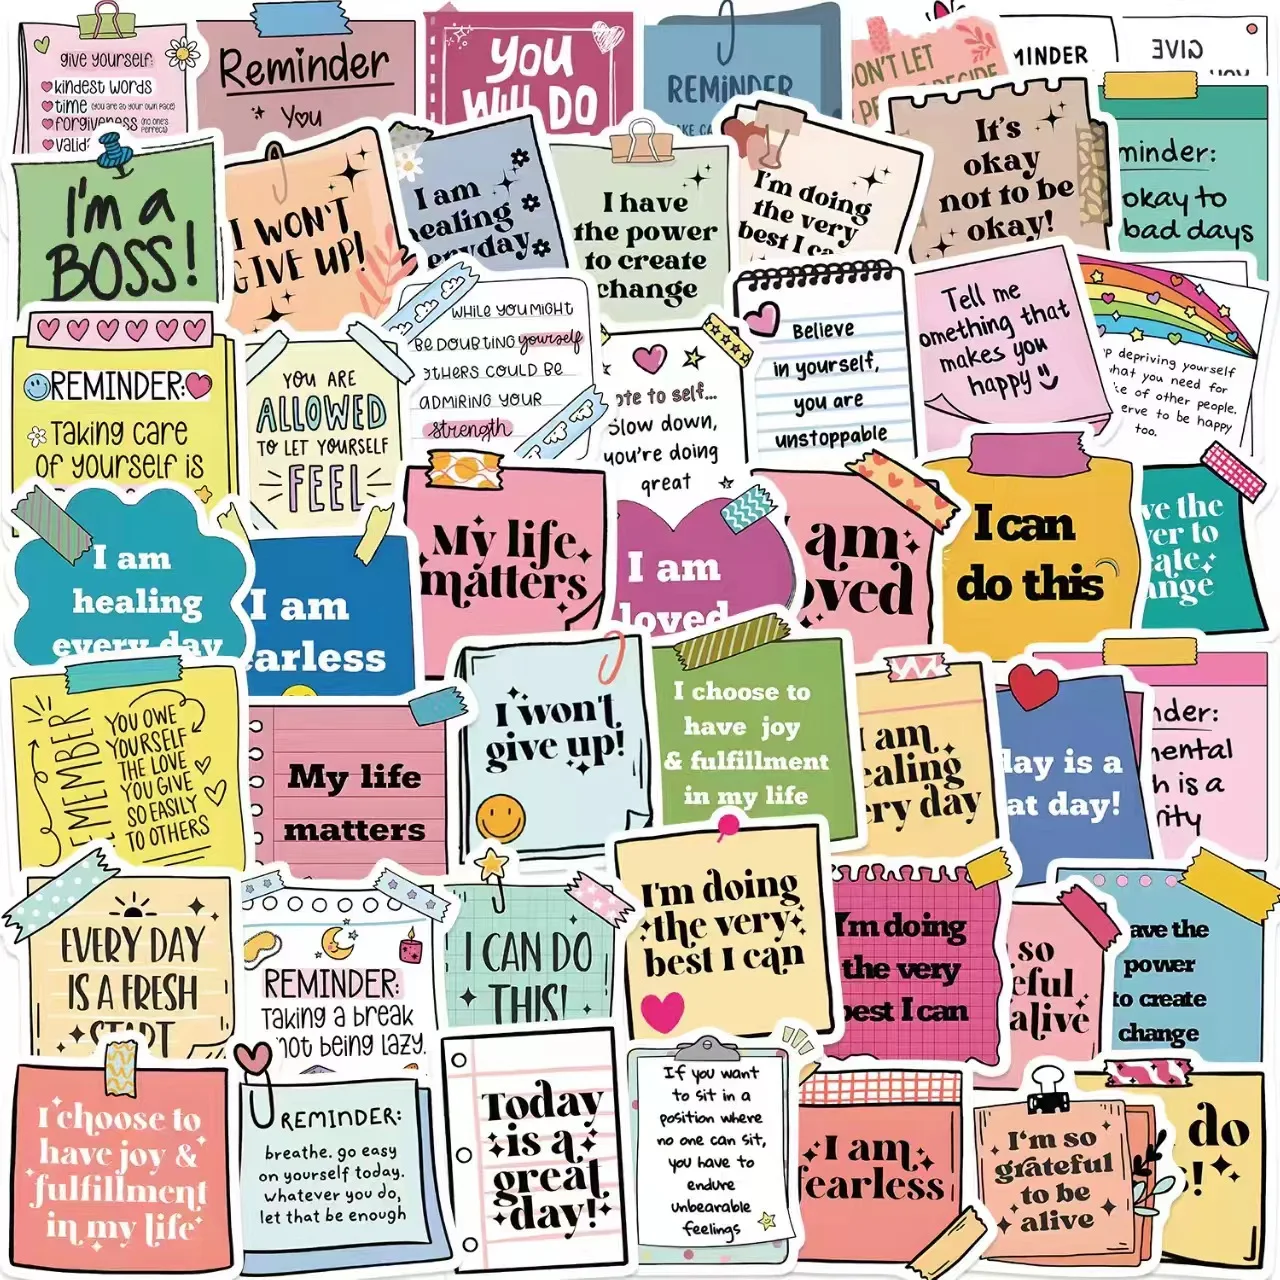 give yourself:
kindest words
time (you are at your own pace)
forgiveness (no one's perfect)
Reminder
You
YOU
WILL DO
REMINDER
DON'T LET
GIVE
It's
okay
not to be
okay!
okay to
bad days
I'm a
BOSS!
I WON'T
GIVE UP!
I am
healing
everyday
I have
the power
to create
change
I'm doing
the very
best I ca
REMINDER:
Taking care
OF yourself is
YOU ARE
ALLOWED
TO LET YOURSELF
FEEL
WHILE YOU MIGHT
BE DOUBTING yourself
OTHERS COULD BE
ADMIRING YOUR
strength
to self...
Slow down,
you're doing
great
Believe
in yourself,
you are
unstoppable
Tell me
something that
makes you
happy
depriving yourself
what you need for
of other people.
to be happy
too.
I am
healing
every day
I am
earless
My life
matters
I am
loved
am
oved
I can
do this
the
REMEMBER
YOU OWE
YOURSELF
THE LOVE
YOU GIVE
SO EASILY
TO OTHERS
My life
matters
I won't
give up!
I choose to
have joy
& fulfillment
in my life
am
ealing
ery day
day is a
at day!
nder:
mental
is a
EVERY DAY
IS A FRESH
START
REMINDER:
Taking a break
not being lazy.
I CAN DO
THIS!
I'm doing
the very
best I can
I'm doing
the very
best I can
so
eful
alive
ave the
power
to create
change
I choose to
have joy &
fulfillment
in my life
REMINDER:
breathe. go easy
on yourself today.
whatever you do,
let that be enough
Today
is a
great
day!
If you want
to sit in a
position where
no one can sit,
you have to
endure
unbearable
feelings
I am
fearless
I'm so
grateful
to be
alive
do
s!